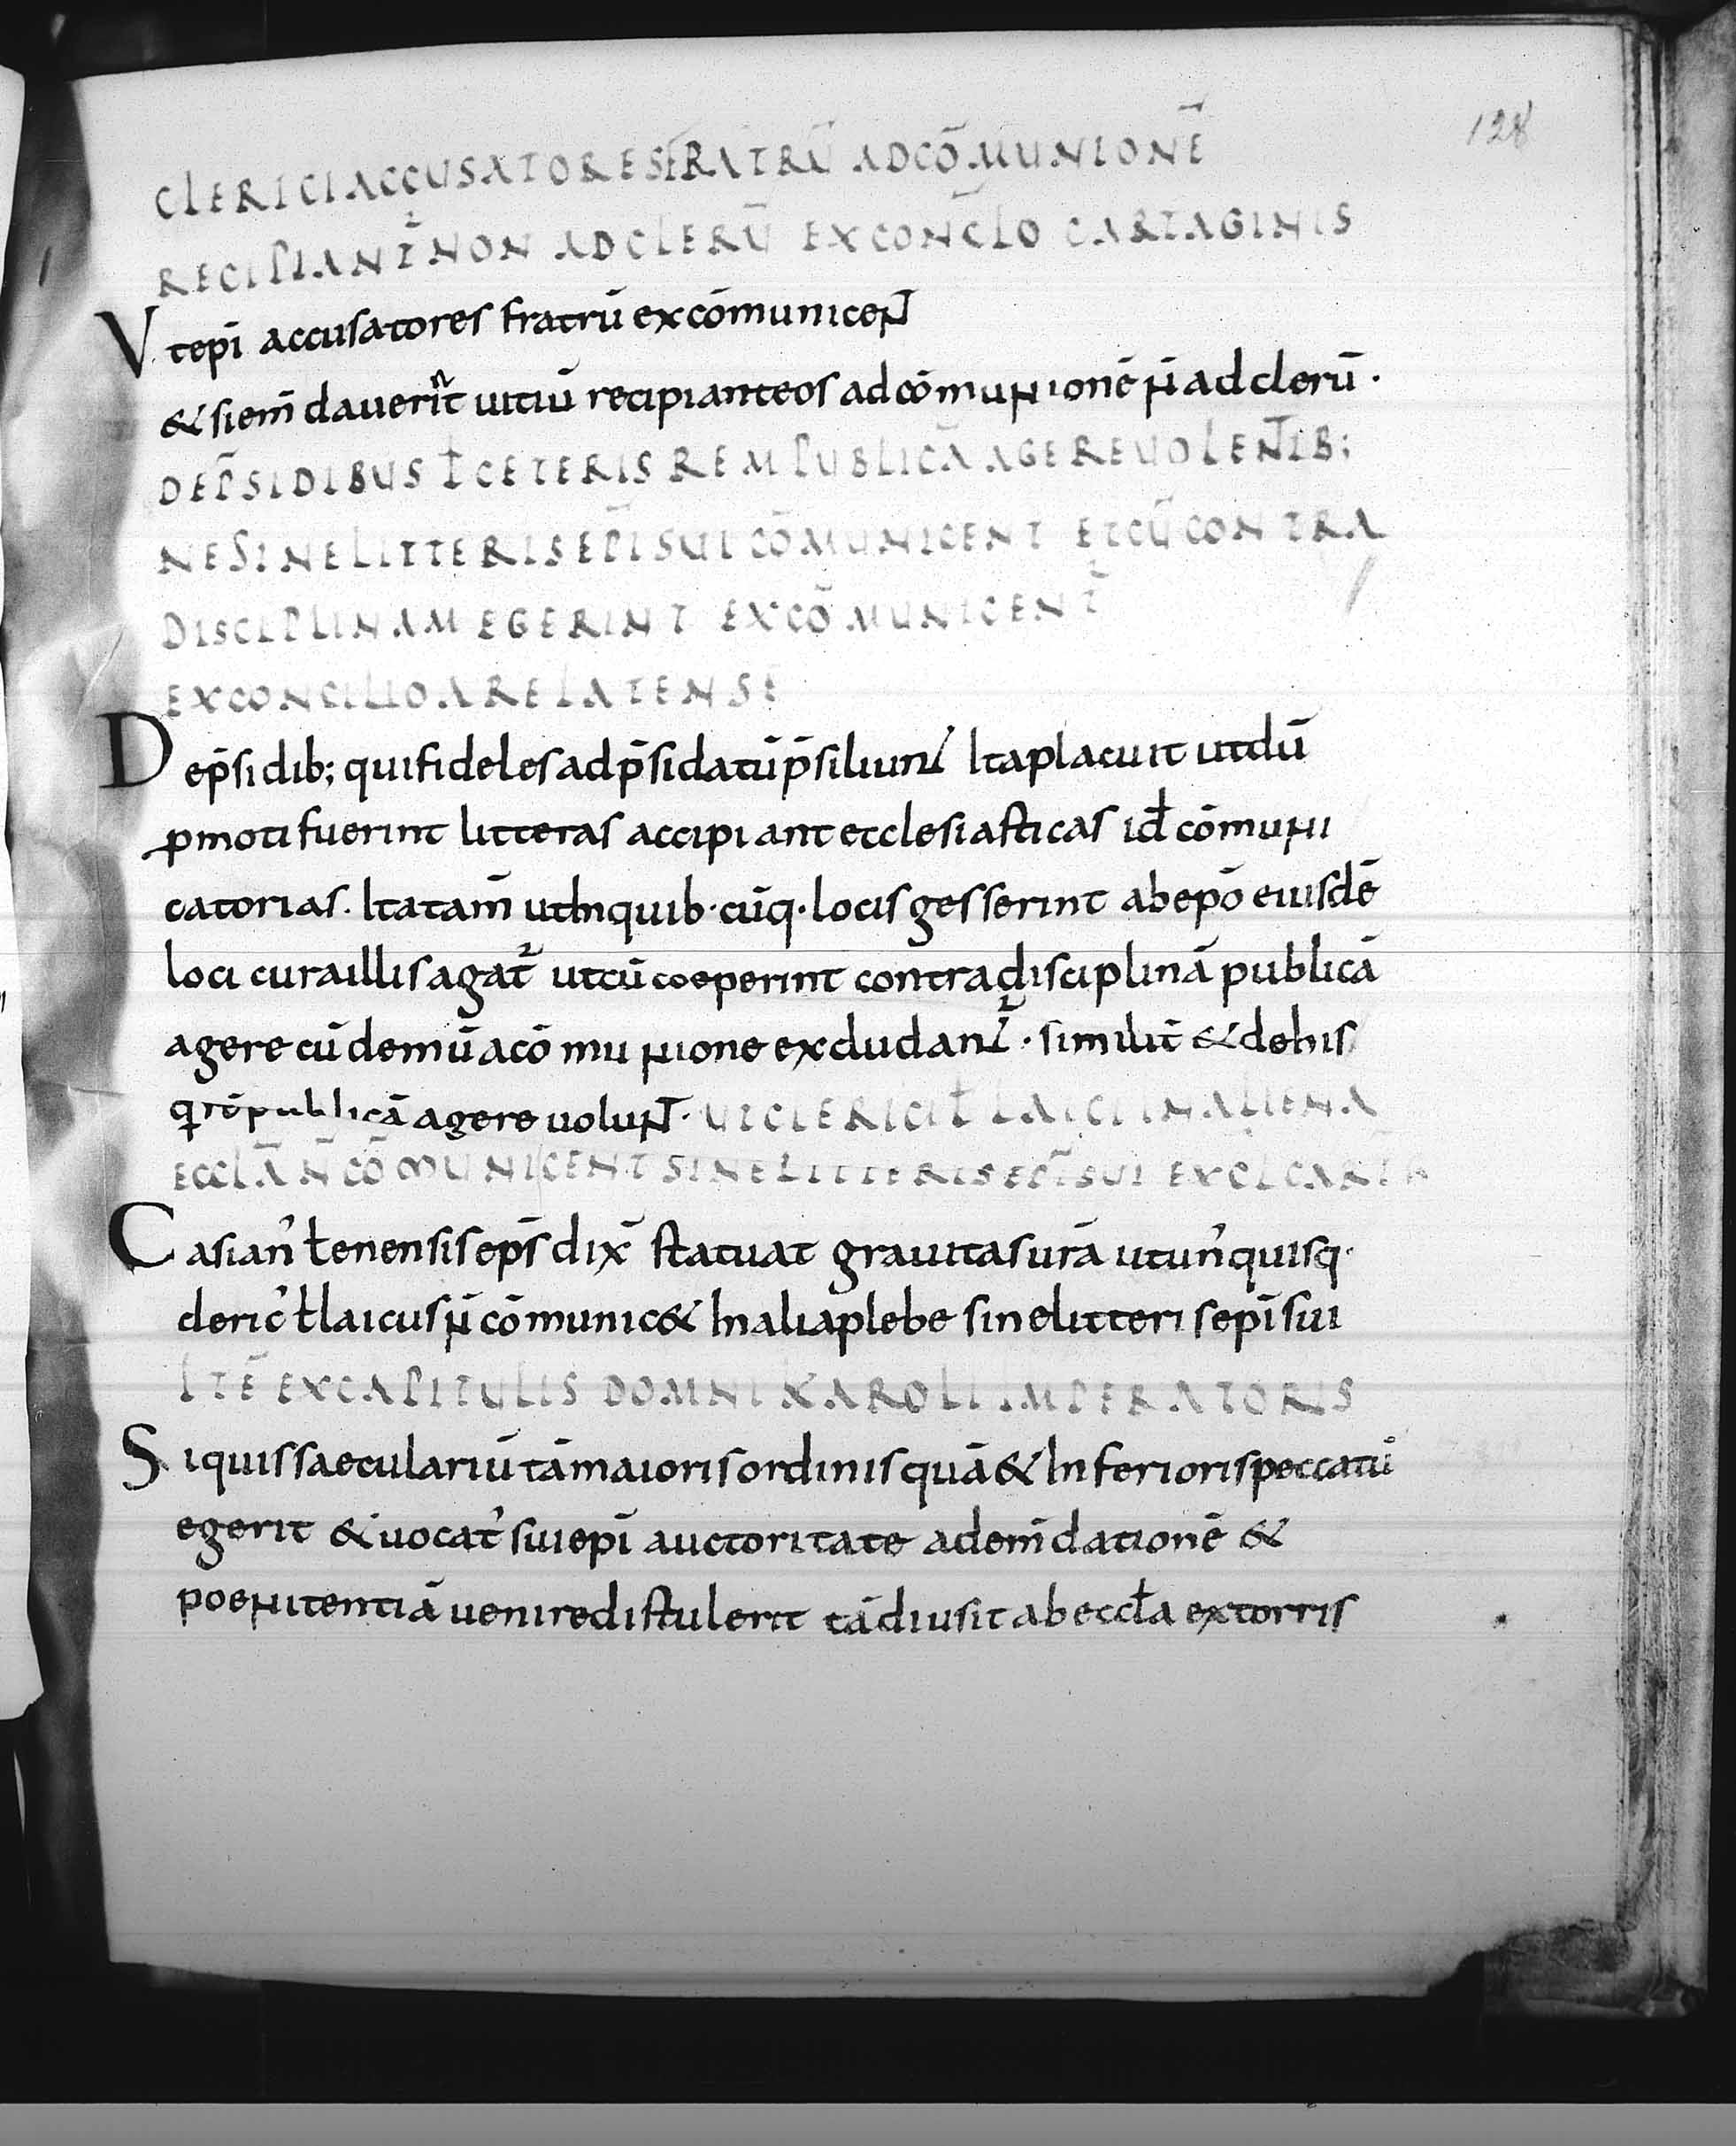 128
CLERICI ACCUSATORES FRATRŪ AD CŌMUNIONĒ
RECIPIANT̄ NON AD CLERŪ EX CONC̄LO CARTAGINIS
Ut epī accusatores fratrū excōmunicent̄
& si em̄daver̄t vitiū recipiant eos ad cōmunionē n̄ ad clerū.
DE P̄SIDIBUS ł CETERIS REM PUBLICĀ AGERE UOLENTIB;
NE SINE LITTERIS EPĪ SUI CŌMUNICENT ET CŪ CONTRA
DISCIPLINAM EGERINT EXCŌMUNICENT̄
EX CONCILIO ARELATENSE
De p̄sidib; qui fideles ad p̄sidatū p̄siliunt Ita placuit ut dū
ꝓmoti fuerint litteras accipiant ecclesiasticas id̄ cōmuni
catorias. Ita tam̄ ut In quib· cūq· locis gesserint ab epō eiusdē
loci cura illis agat̄ ut cū coeperint contra disciplinā publicā
agere cū demū a cōmunione excludant̄. similit̄ & de his
q̄ rē publicā agere volunt̄. UT CLERICI ł LAICI IN ALIENA
ECCLĀ N̄ CŌMUNICENT SINE LITTERIS EPĪ SUI EX CL CART
Casian' ł enensis ep̄s dix̄ statuat gravitas ur̄a ut un' quisq·
cleric' ł laicus n̄ cōmunic& In alia plebe sine litteris epī sui
ITĒ EX CAPITULIS DOMNI KAROLI IMPERATORIS
Si quis saeculariū tā maioris ordinis quā & Inferioris peccatū
egerit & vocat' sui epī auctoritate ad em̄dationē &
poenitentiā venire distulerit tādiu sit ab eccła extorris